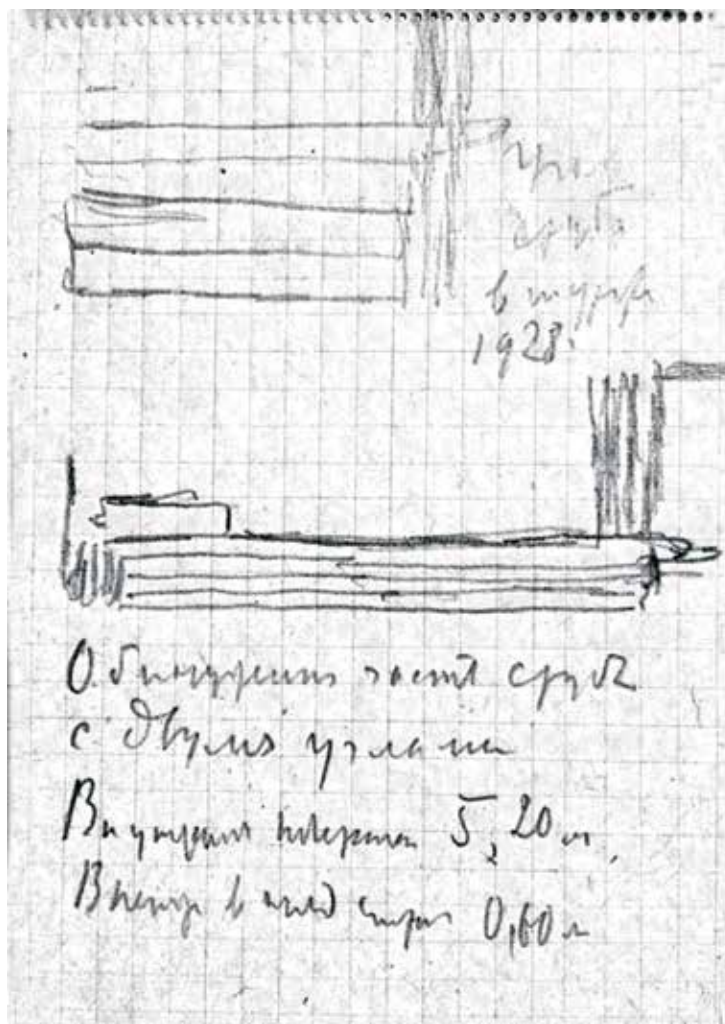 угол
сруба
в шурфе
1928.
Обнаружена часть сруба
с двумя углами
Внутренняя поверхн 5,20 м.
в 0,60 м